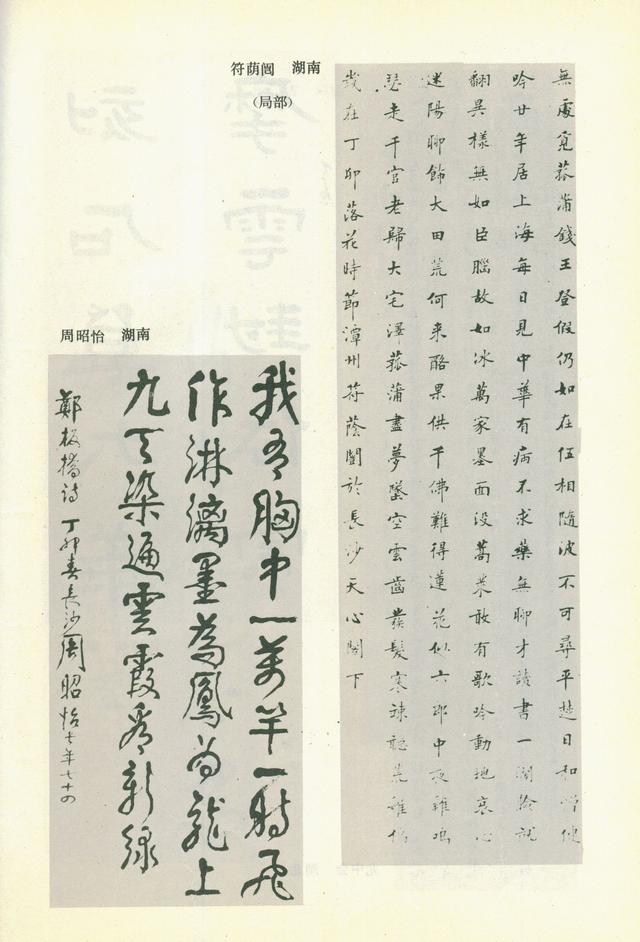 符荫闿 湖南
（局部）
無處覓菰蒲錢王登假仍如在伍相隨波不可尋平楚日和憎健
吟廿年居上海每日見中華有病不求藥無聊才讀書一闊臉就
翻異樣無如臣腦故如冰萬家墨面没蒿萊敢有歌吟動地哀心
迷陽聊飾大田荒何来酪果供千佛難得蓮花似六郎中夜雞鳴
瑟走千官老歸大宅澤菰蒲盡夢墜空雲齒髮寒竦聽荒雞偏
在丁卯落花時節潭州符蔭闓於長沙天心閣下
周昭怡 湖南
我有胸中一萬竿一時飛
作淋漓墨為鳳為龍上
九天染遍雲霞看新綠
鄭板橋詩 丁卯春長沙周昭怡年七十四